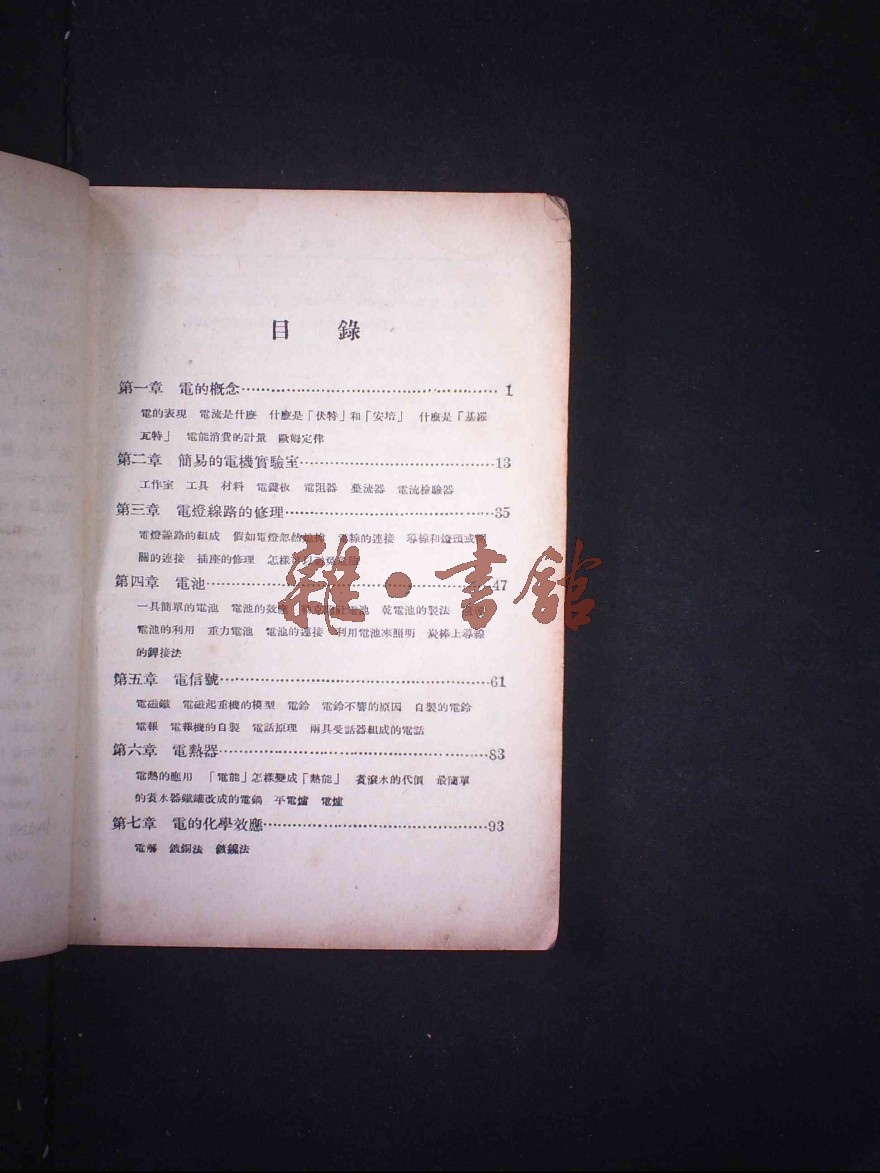 目錄
第一章 電的概念 1
電的表現 電流是什麼 什麼是「伏特」和「安培」 什麼是「基羅
瓦特」 電能消費的計量 歐姆定律
第二章 簡易的電機實驗室 13
工作室 工具 材料 電鍵板 電阻器 整流器 電流檢驗器
第三章 電燈線路的修理 35
電燈線路的組成 假如電燈忽然 線的連接 導線和燈頭或
關的連接 插座的修理 怎樣可以
第四章 電池 47
一具簡單的電池 電池的效應 電池 乾電池的製法
電池的利用 重力電池 電池的連接 利用電池來照明 炭棒上導線
的銲接法
第五章 電信號 61
電磁鐵 電磁起重機的模型 電鈴 電鈴不響的原因 自製的電鈴
電報 電報機的自製 電話原理 兩具受話器組成的電話
第六章 電熱器 83
電熱的應用 「電能」怎樣變成「熱能」 煑滾水的代價 最簡單
的煑水器鐵罐改成的電鍋 平電爐 電爐
第七章 電的化學效應 93
電解 鍍銅法 鍍鎳法
雜·書館